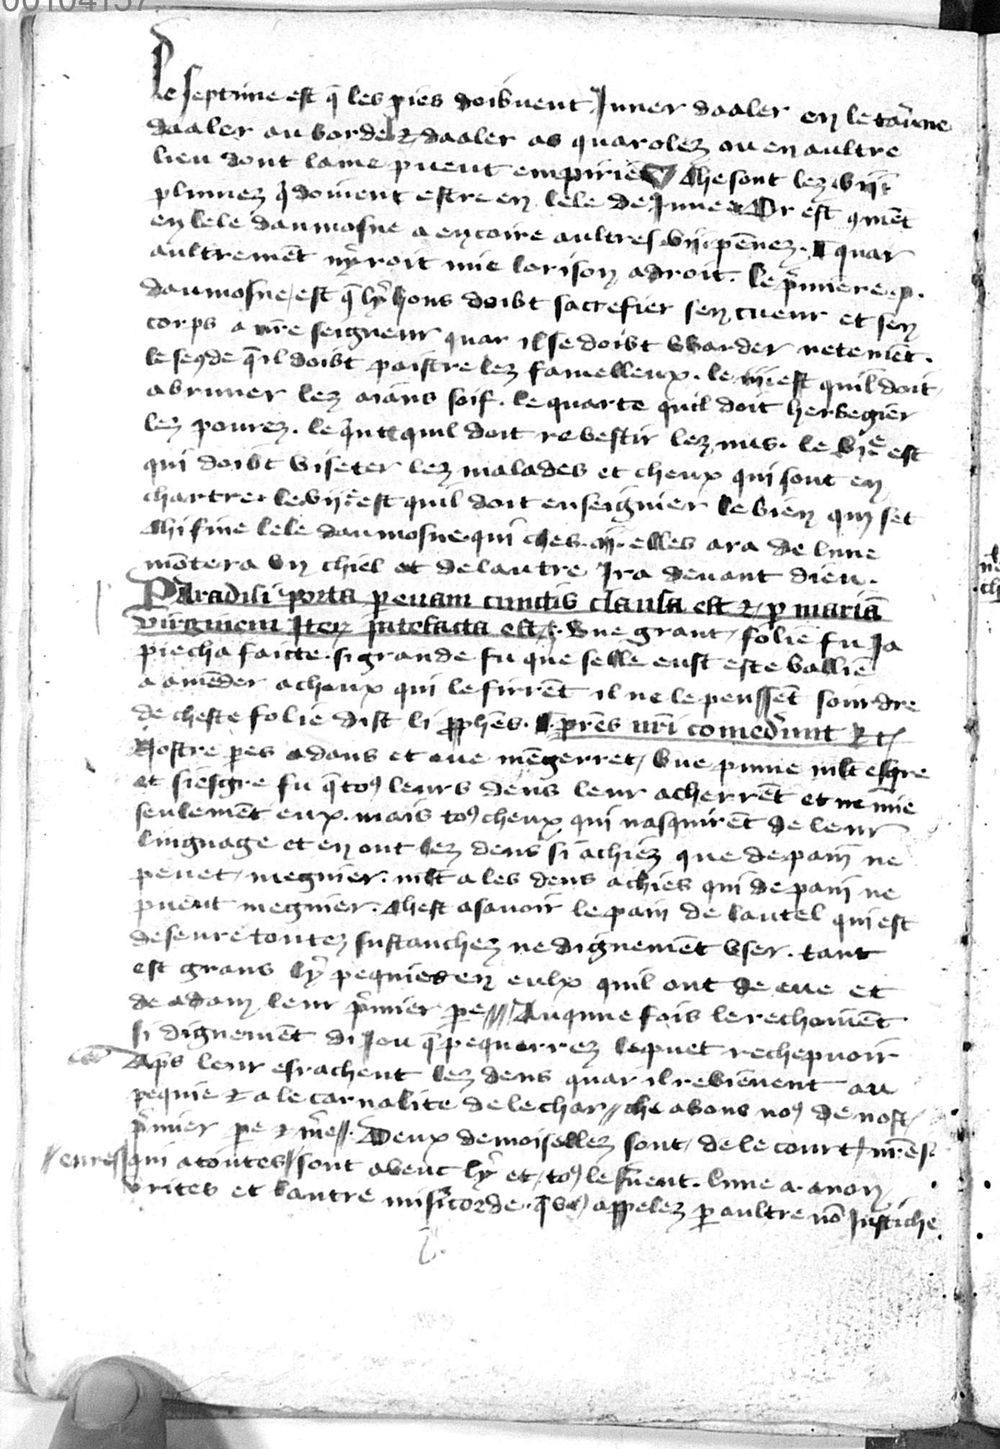 00104157
Le septime est q̄ les pies doibuent Juner daaler en le tau̾ne
daaler au bordel & daaler as quarolez ou en aultre
lieu dont lame puent empirier Che sont lez vijt
plumez q̄ doiuent estre en lele de June & Or est 9mēt
en lele daumosne a encoire aultres vij pēnez. quar
aultremēt nȳroit mie lorison adroit. le p̄miere p.
daumosne est q̄ lȳ hons doibt sacrefier sen cueur et sen
corps a nr̄e seigneur quar il se doibt warder netemēt.
le se9de q̄ il doibt paistre lez famelleux. le iije est quil doit
abruuer lez aians soif. le quarte quil doit herbegier
lez pourez. le q̄nte quil doit revestir lez nus. le vje est
qui doibt viseter lez malades et cheux qui sont en
chartre. le vije est quil doit enseignier le bien quil set
Chi fine lele daumosne. qui ches .ij. elles ara de lune
mōtera en chiel et de lautre Jra deuant dieu.
Paradisi porta per euam cunctis clausa est & p mariā
virginem Iter patefacta est &. Vne grant folie fu Ja
piecha faicte. si grande fu que selle eust este baillie
a amēder a cheux qui le firrēt il ne le peussēt sourdre
de cheste folie dist li pp̄hēs. pr̄es nr̄i comedēr̄unt & c̄
Nostre peres adans et eue mēgerret vne pume mlt esgre
et si esgre fu q̄ to9 leurs dens leur acherrēt et ne mie
seulemēt eux. mais to9 cheux qui nasquirēt de leur
lingnage et en ont lez dens si achiez que de pain ne
peuet megnier. mlt a les dens achies qui de pain ne
puent megnier. Chest asauoir le pain de lautel qui est
deseure toutez sustanchez ne dignemēt vser. tant
est grans lȳ pequies en eulx quil ont de eue et
de adam leur p̄mier pe// Auqune fois le rechoiuēt
si dignemēt di Jou q̄ pequerrez le puet rechepuoir
Ap̄s leur esrachent lez dens quar il reuienent au
pequie & a le carnalite de le char// che auons no9 de nost̄
p̄mier pe & m̄e//. Deux demoisellez sont de le court nr̄e s.
//eures// qui a toutes// sont auenc lȳ et to9 le siuent. lune a anon
v̄rites et lautre mis̄icorde. q̄ vo9 appelez p aultre nō Justiche